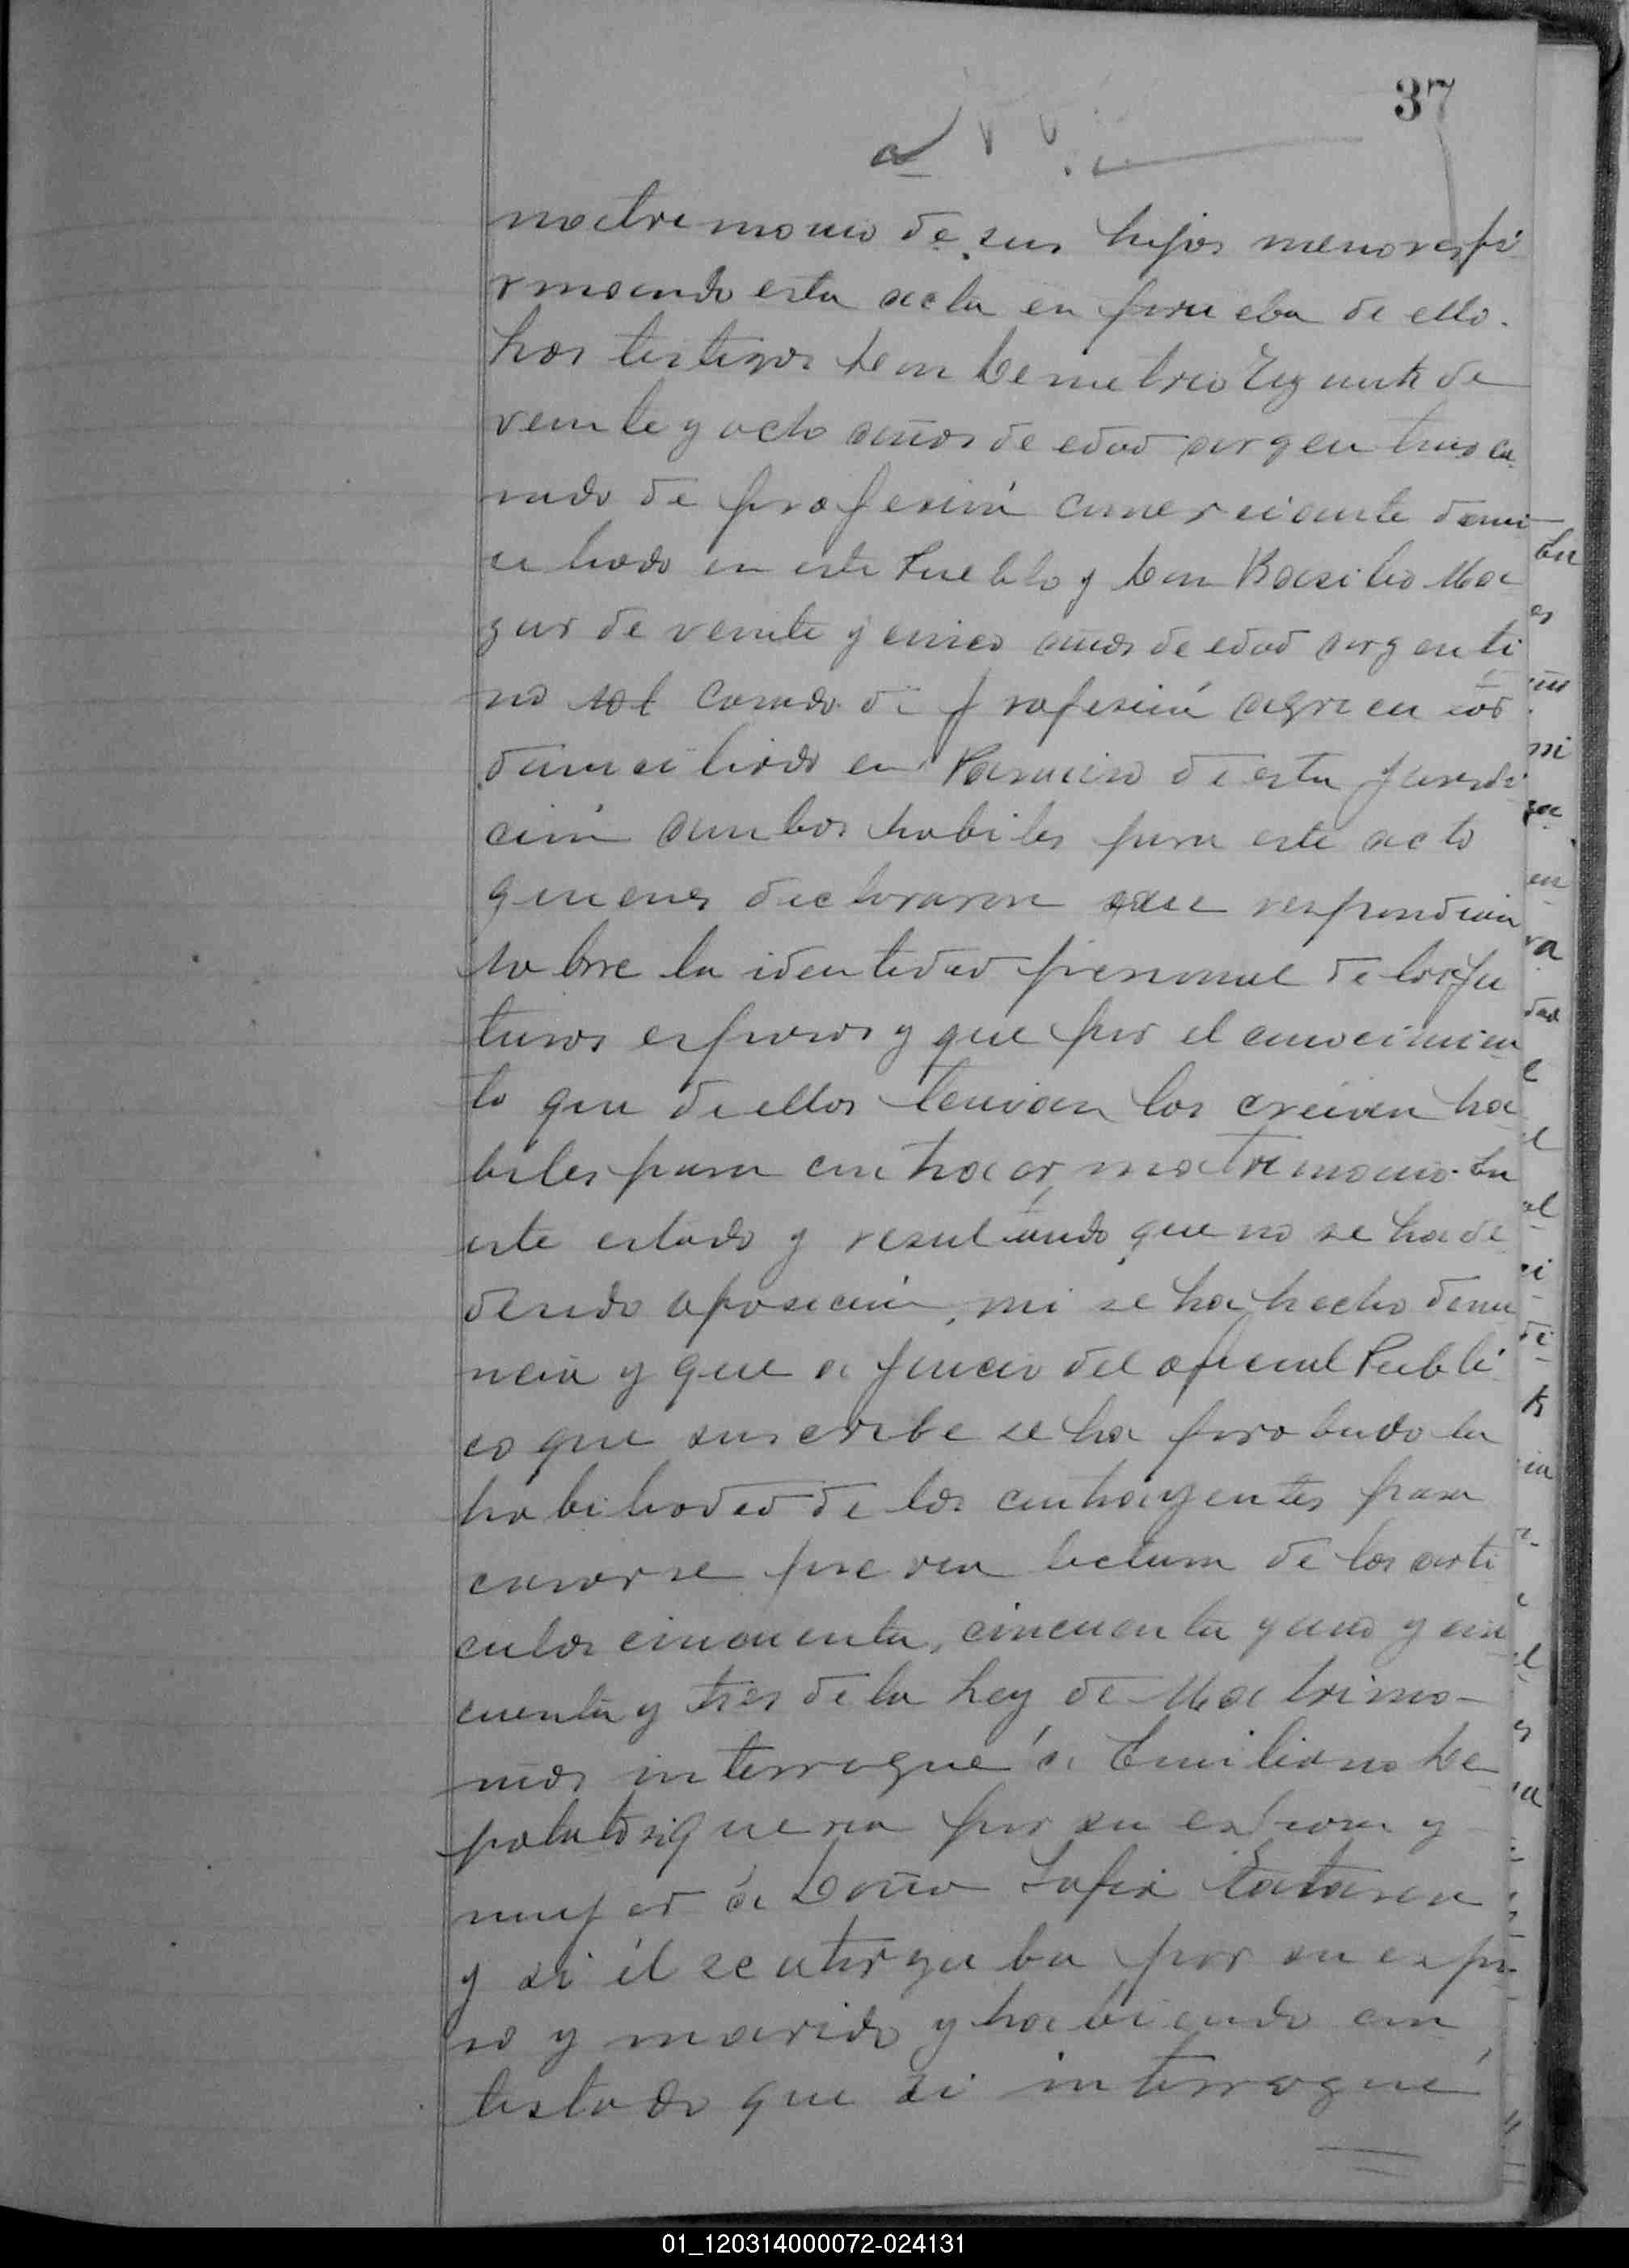 37
matrimonio de sus hijos menores fi
rmando esta acta en prueba de ello.
Los testigos Don Demetrio de
veinte y ocho años de edad argentino ca
sado de profesión comerciante domi
ciliado en este Pueblo y Don Basilio Ma
zur de veinte y cinco años de edad argenti
no sol casado de profesión agricultor
domiciliado en de esta jurisdi
ción ambos habiles para este acto
quienes declararon que respondian
sobre la identidad personal de los fu
turos esposos y que por el conocimien
to que de ellos tenian los creian ha
biles para contraer matrimonio. En
este estado y resultando que no se ha de
ducido oposición, ni se ha hecho denu
ncia y que a juicio del oficial Públi
co que suscribe se ha probado la
habilidad de los contrayentes para
casarse previa lectura de los arti
culos cincuenta, cincuenta y uno y cin
cuenta y tres de la Ley de Matrimo-
nios interrogué á Emiliano De
polato si queria por su esposa y
mujer á Doña Sofia Tataren
y si él se otorgaba por su espo-
so y marido y habiendo con
testado que si interrogué
01_120314000072-024131